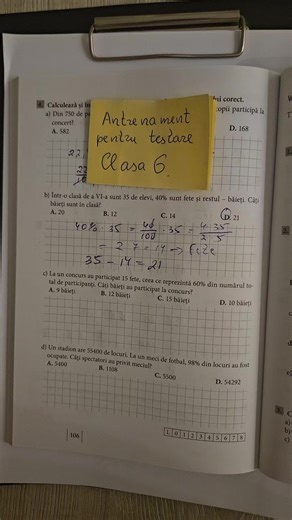 4. Calculează și în
lui corect.
a) Din 750 de
copii participă la
concert?
A. 382
D. 168
Antrenament
pentru testare
Clasa 6
b) Într-o clasă de a VI-a sunt 35 de elevi, 40% sunt fete și restul – băieți. Câți
băieți sunt în clasă?
A. 20 B. 12 C. 14 D. 21
40% · 35 = 40/100 · 35 = 4·35
= 2·7 = 14 → fete
35 - 14 = 21
c) La un concurs au participat 15 fete, ceea ce reprezintă 60% din numărul to-
tal de participanți. Câți băieți au participat la concurs?
A. 9 băieți B. 12 băieți C. 15 băieți D. 10 băieți
d) Un stadion are 55400 de locuri. La un meci de fotbal, 98% din locuri au fost
ocupate. Câți spectatori au privit meciul?
A. 5400 B. 1108 C. 5500 D. 54292
106
1 0 1 2 3 4 5 6 7 8